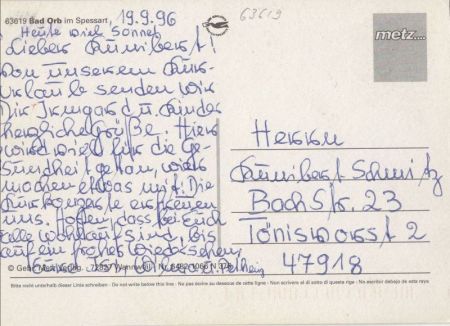 63619 Bad Orb im Spessart
19.9.96
63619
Heute viel Sonne
Lieber Kunibert!
Von unserem Kur-
urlaub senden wir
Dir Irmgard u. Kinder
herzliche Grüße. Hier
wird viel für die Ge-
sundheit getan, wir
machen etwas mit. Die
Kurkonzerte erfreuen
uns. Hoffen, dass bei Euch
alle wohlauf sind, bis
auf ein frohes Wiedersehen
metz....
Herrn
Kunibert Schmitz
Bachstr. 23
Tönisvorst 2
47918
© Gebr. Metz Verlag, 72827 Wannweil
Bitte nicht unterhalb dieser Linie schreiben - Do not write below this line - Ne pas écrire au dessous de cette ligne - Non scrivere al di sotto di questa riga - No escribir debajo de esta raya